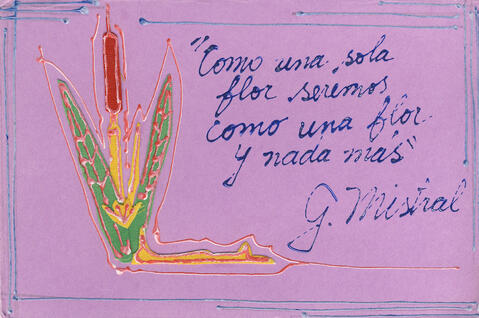 "Como una sola
flor seremos
como una flor
y nada más"
G. Mistral